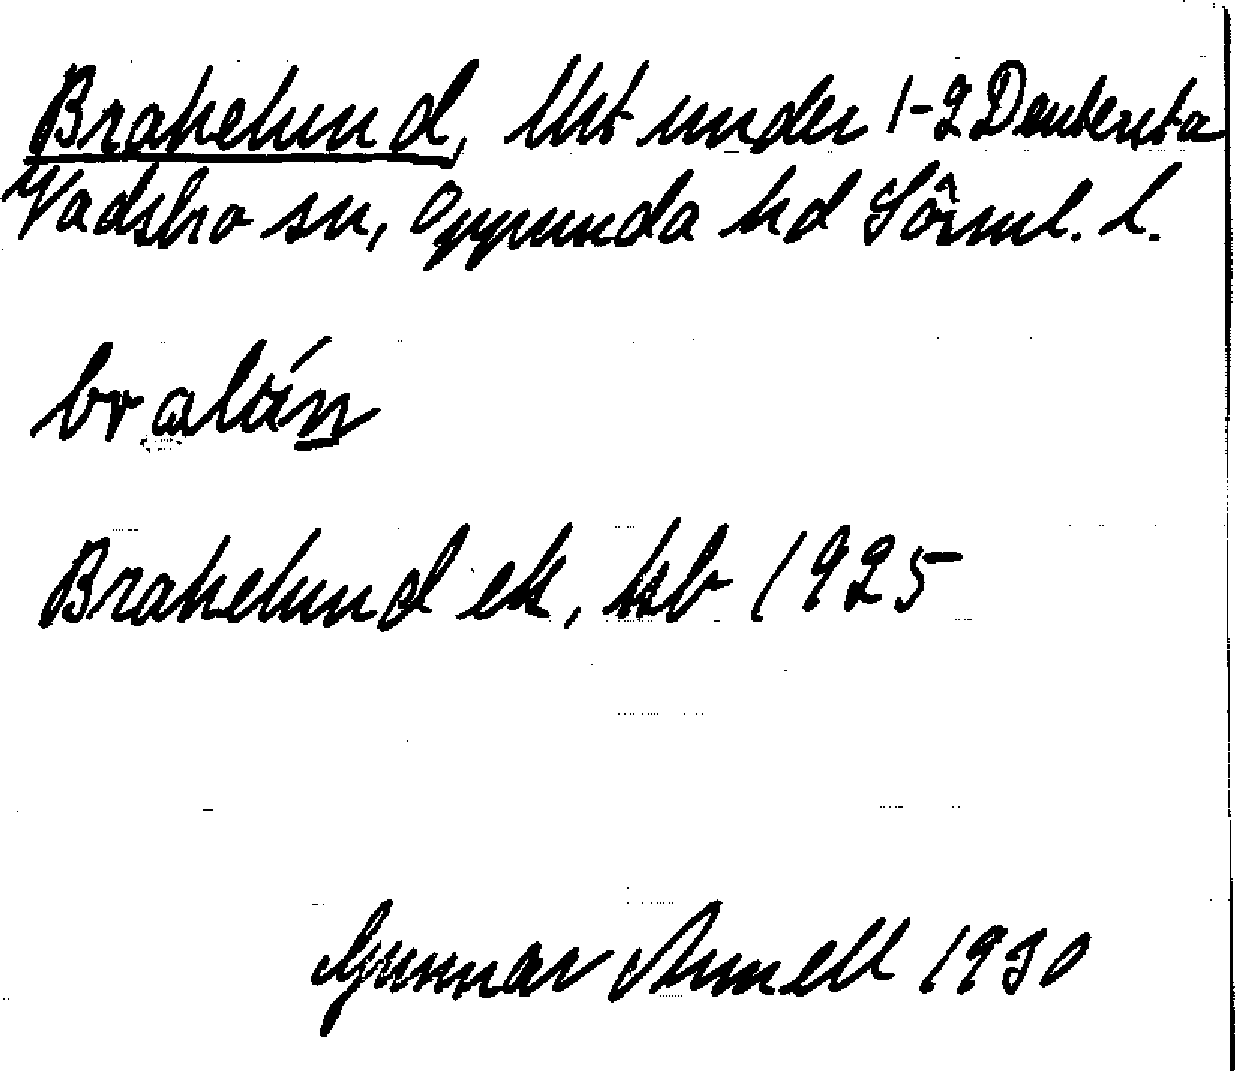 Brakelund, lht under 1-2 Danbersta
Vadsbro sn, Oppunda hd Sörml. l.
Brakelund ek, hsb 1925
Gunnar Arnell 1930